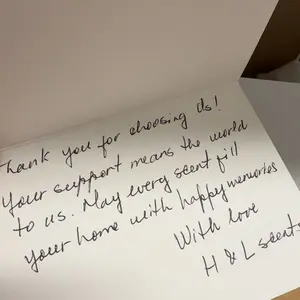 Thank you for choosing Us!
Your support means the world
to us. May every scent fill
your home with happy memories
With love
H & L scents